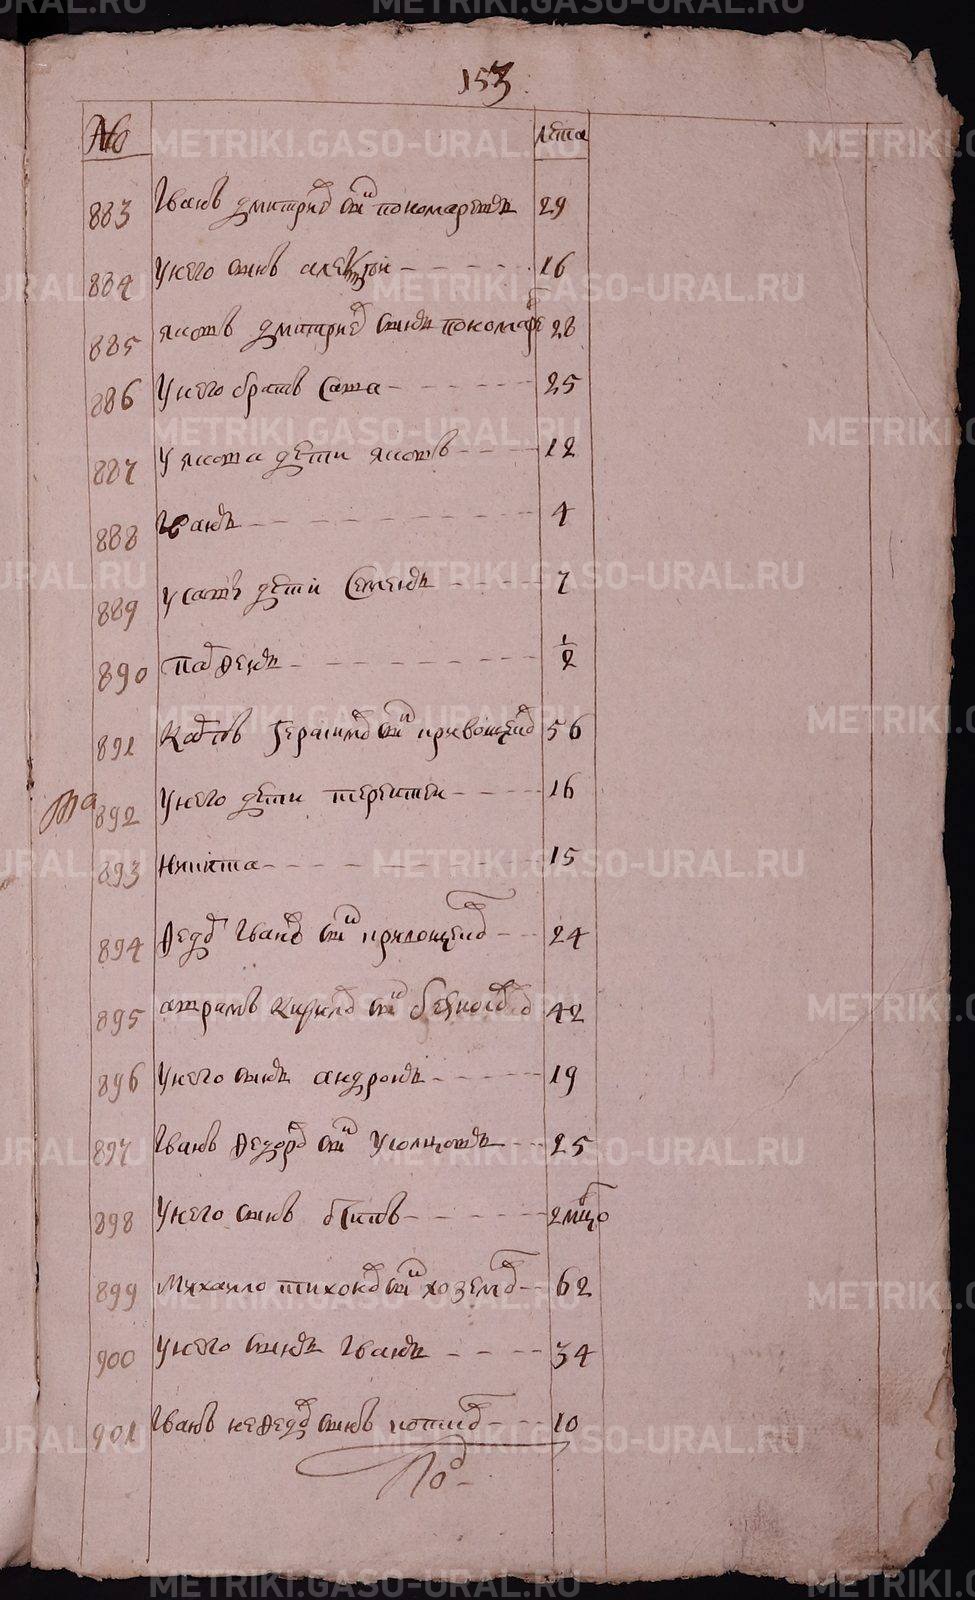 153
№ лета
883 Иванъ дмитриевъ снъ пономаревъ 29
884 У него сынъ алексѣй 16
885 яковъ дмитриевъ сынъ пономарев 28
886 У него братъ Сава 25
887 У якова дети яковъ 12
888 Иванъ 4
889 У савы дети Семенъ 7
890 парфенъ 1/2
891 Герасимов снъ 56
892 У него дети терентей 16
893 Никита 15
894 Федор Иванов снъ 24
895 аврамъ Кирилов снъ 42
896 У него сынъ андронъ 19
897 Иванъ Федоров снъ Усолцовъ 25
898 У него сынъ 2 мцов
899 Михайло тихонов снъ 62
900 У него сынъ Иванъ 34
901 Иванъ нефедов сынъ 10
METRIKI.GASO-URAL.RU